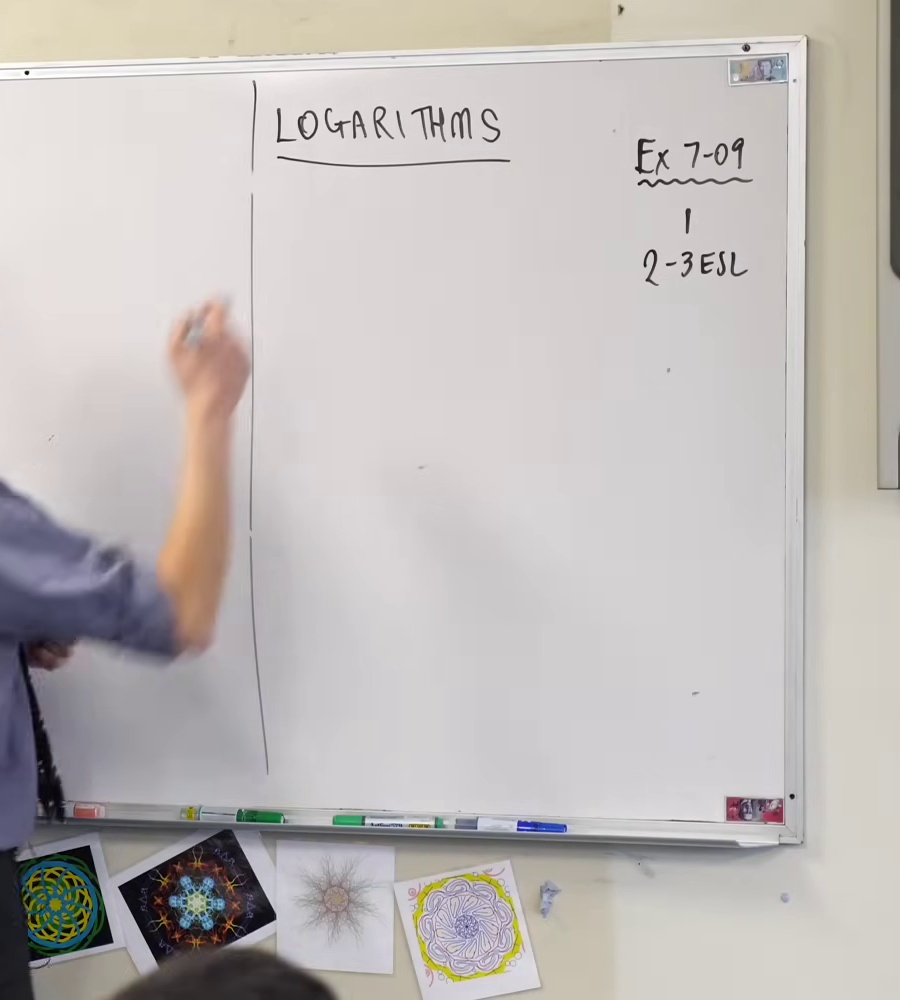 LOGARITHMS
Ex 7-09
1
2-3 ESL